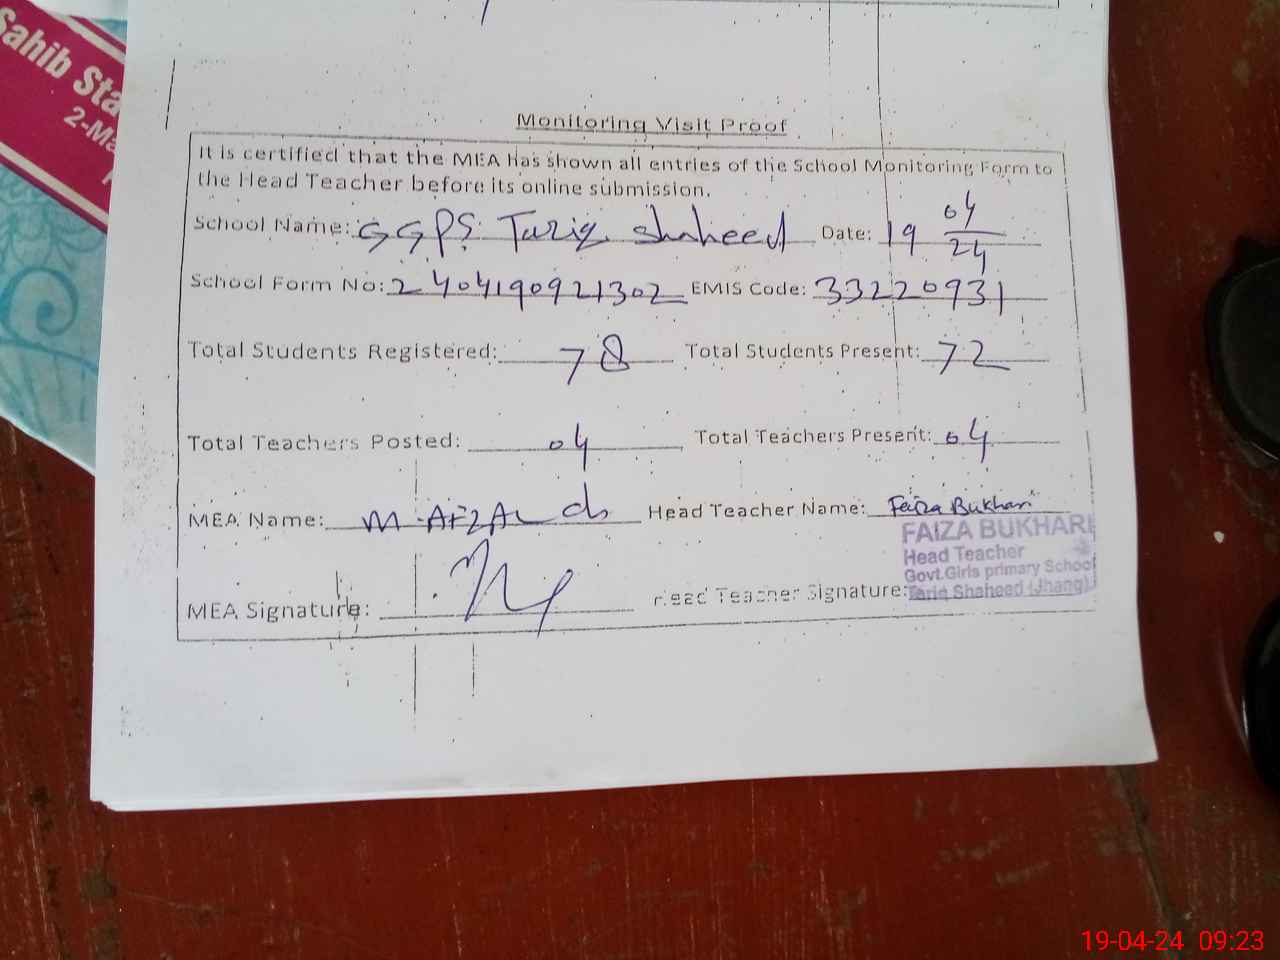 Sahib Sta
2-Ma
Monitoring Visit Proof
It is certified that the MEA has shown all entries of the School Monitoring Form to
the Head Teacher before its online submission.
School Name: GGPS Tariq Shaheed Date: 19 04/24
School Form No: 2404190921302 EMIS Code: 33220931
Total Students Registered: 78 Total Students Present: 72
Total Teachers Posted: 04 Total Teachers Present: 04
MEA Name: M. AFZAL Head Teacher Name: Faiza Bukhari
FAIZA BUKHARI
Head Teacher
Govt.Girls primary School
Tariq Shaheed (Jhang)
MEA Signature: Head Teacher Signature:
19-04-24 09:23